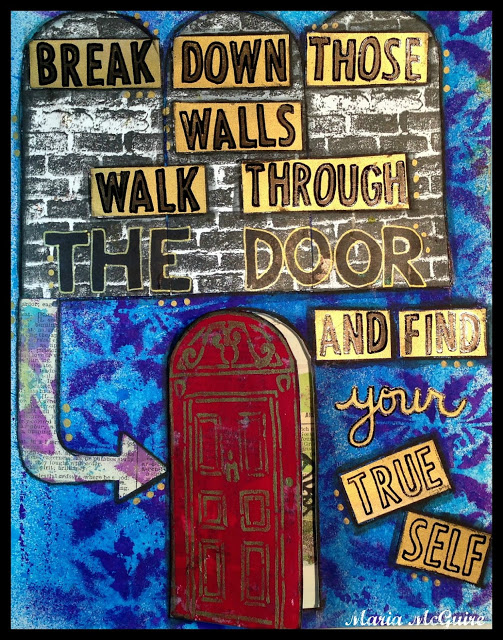 BREAK DOWN THOSE
WALLS
WALK THROUGH
THE DOOR
AND FIND
your
TRUE
SELF
Maria McGuire